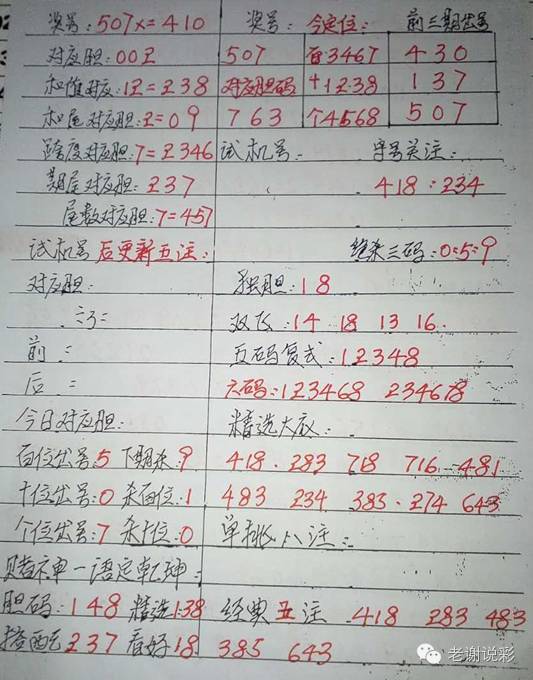 奖号:507x=410 奖号: 今定位: 前三期出号
对应胆:00Z 507 百3467 430
和值对应:1Z=Z38 对应胆码 十1238 137
和尾对应胆:Z=09 763 个4568 507
跨度对应胆:7=Z346 试机号: 守号关注:
期尾对应胆:Z37 418:234
尾数对应胆:7=457
试机号后更新五注: 绝杀三码:0:5:9
对应胆: 独胆:18
双飞:14 18 13 16.
前: 五码复式:12348
后: 六码:123468 234678
今日对应胆: 精选大底:
百位出号:5 下期杀:9 418. 283 718 716 481
十位出号:0 杀百位:1 483 234 383. 274 643
个位出号:7 杀十位:0 单挑八注:
赌神一语定乾坤:
胆码:148 精选138 经典五注 418 283 483
搭配237 看好18 385 643
老谢说彩